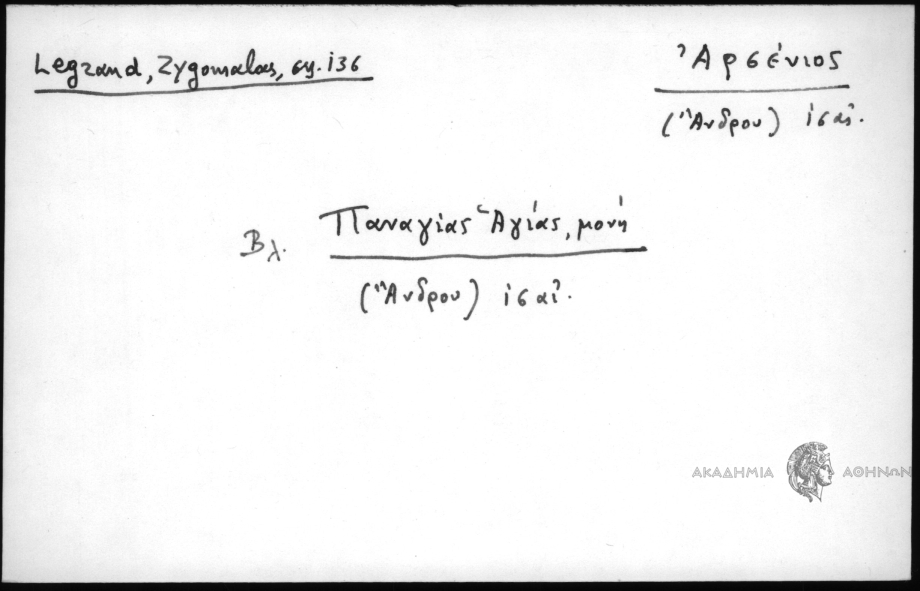 Legrand, Zygomalas, σχ. 136
Ἀρσένιος
(Ἄνδρου) ις αἰ.
Βλ. Παναγίας Ἁγίας, μονή
(Ἄνδρου) ις αἰ.
ΑΚΑΔΗΜΙΑ ΑΘΗΝΩΝ